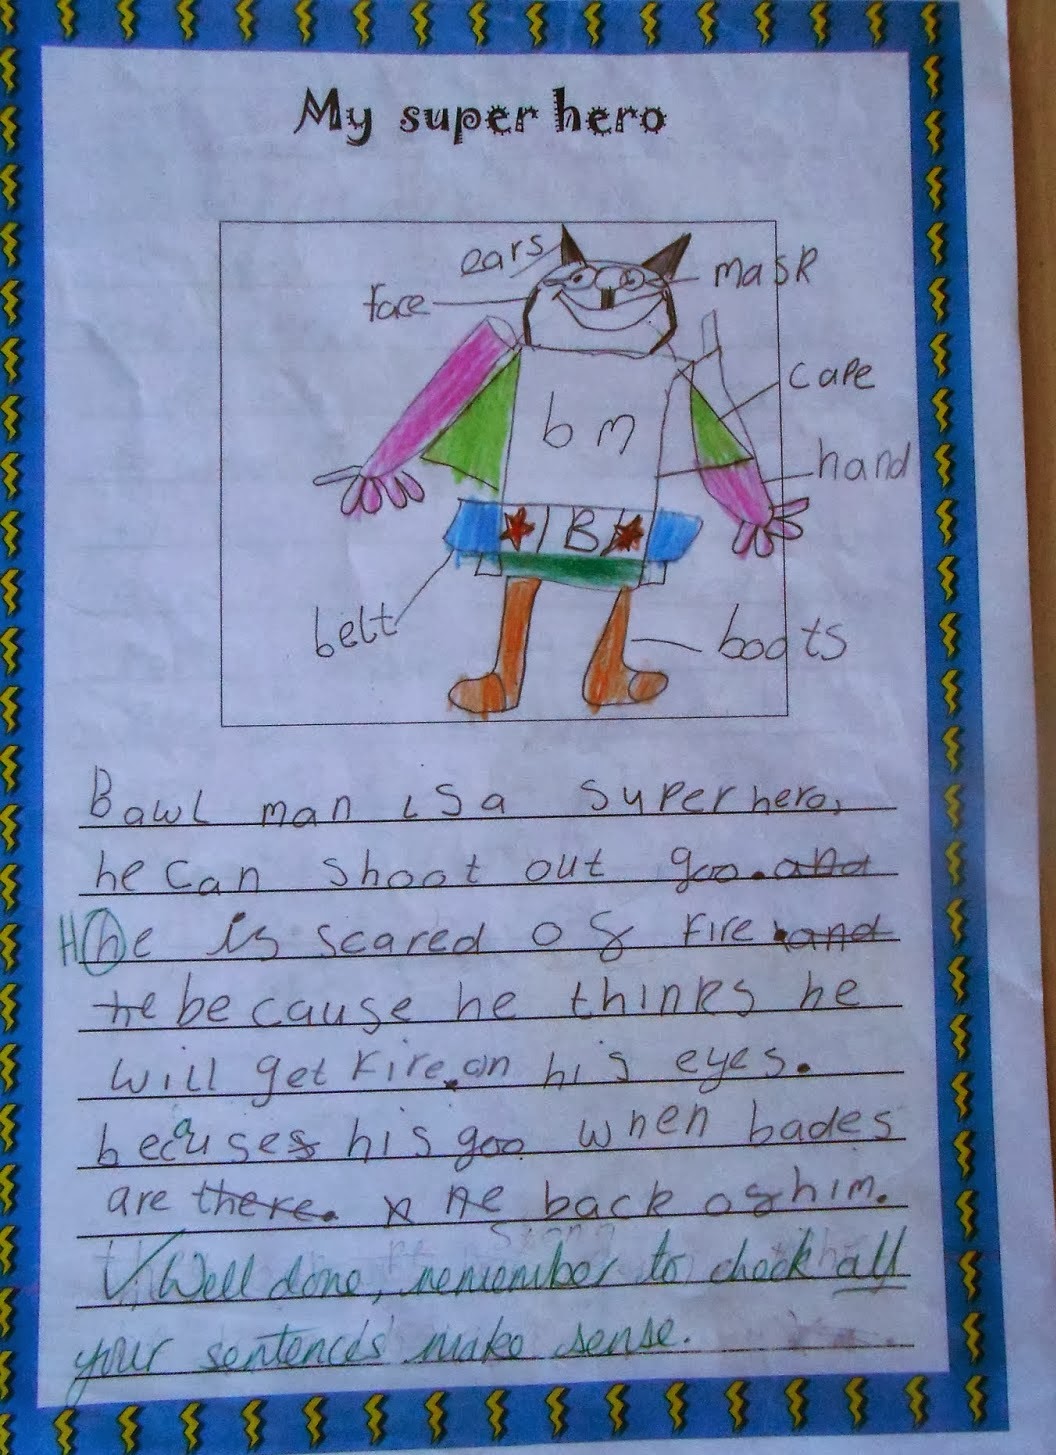 My super hero
ears
mask
face
cape
bm
hand
B
belt
boots
Bawl man is a Super hero,
he can shoot out goo. and
H he is scared of fire. and
he because he thinks he
will get fire. on his eyes.
because his goo when bades
are there. he back of him.
Well done, remember to check all
your sentences make sense.